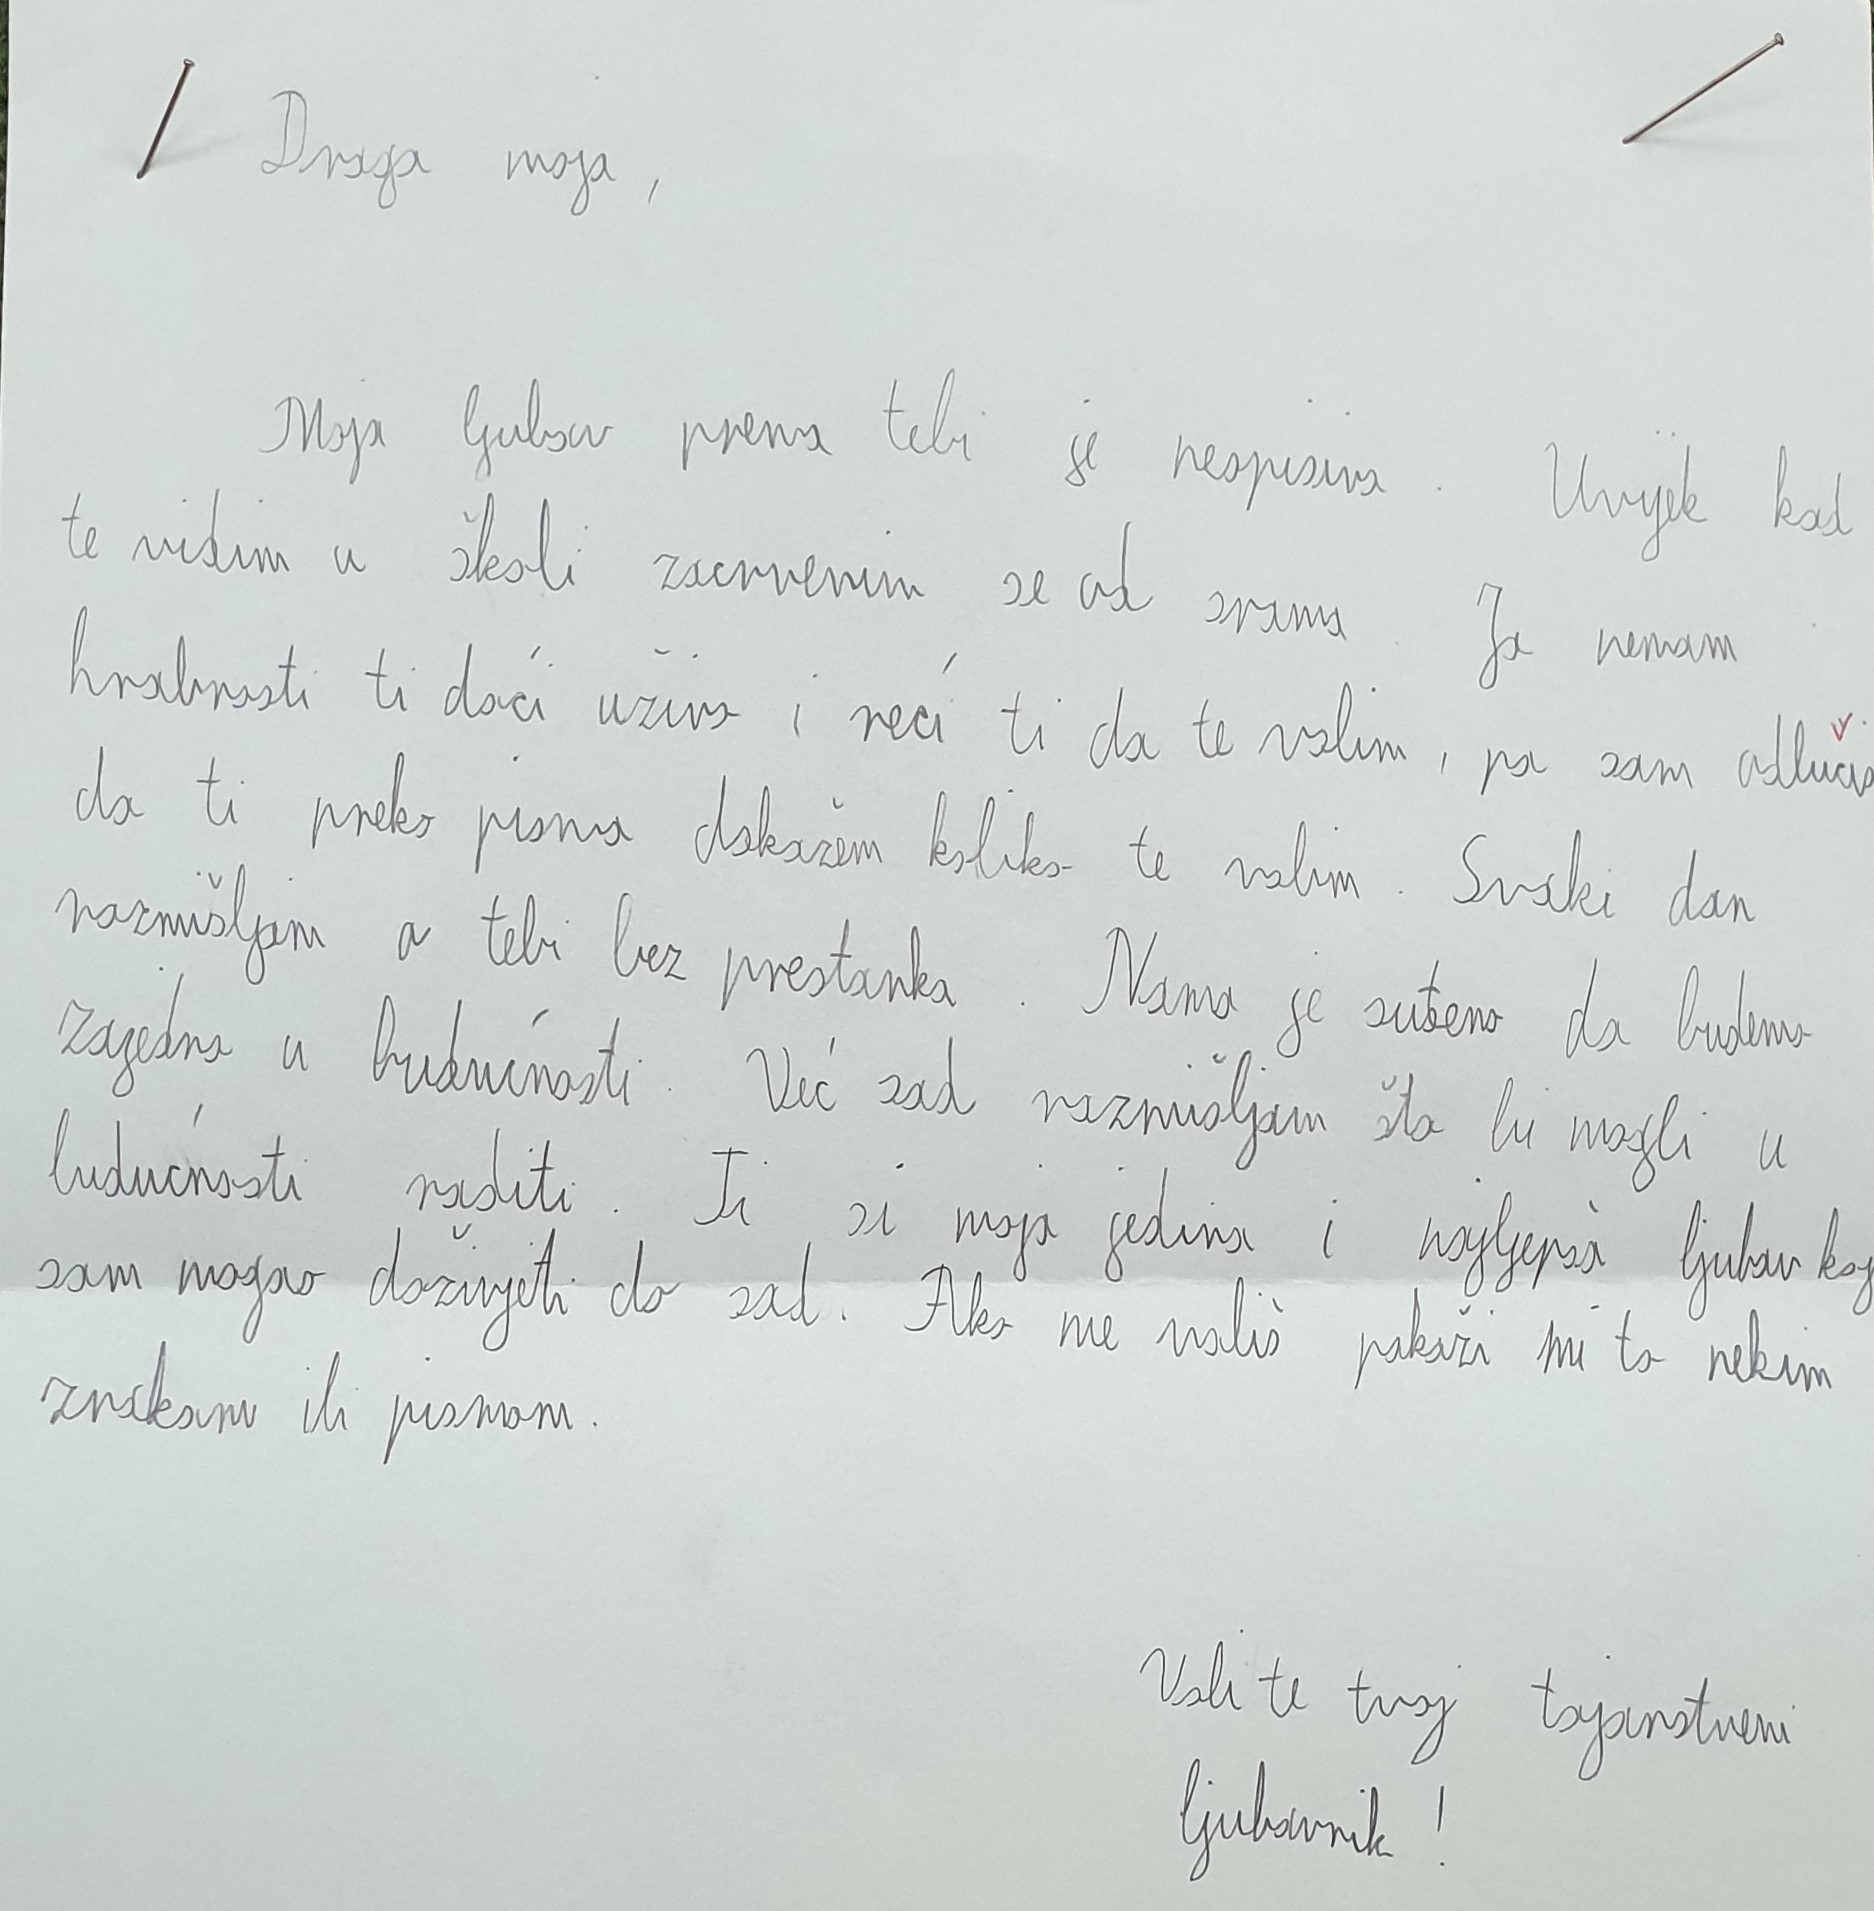 Draga moja,
Moja ljubav prema tebi je neopisiva. Uvijek kad
te vidim u školi zacrvenim se od srama. Ja nemam
hrabrosti ti doći uživo i reći ti da te volim, pa sam odlučio
da ti preko pisma dokažem koliko te volim. Svaki dan
razmišljam o tebi bez prestanka. Nama je suđeno da budemo
zajedno u budućnosti. Već sad razmišljam šta bi mogli u
budućnosti raditi. Ti si moja jedina i najljepša ljubav koj
sam mogao doživjeti do sad. Ako me voliš pokaži mi to nekim
znakom ili pismom.
Voli te tvoj tajanstveni
ljubavnik!